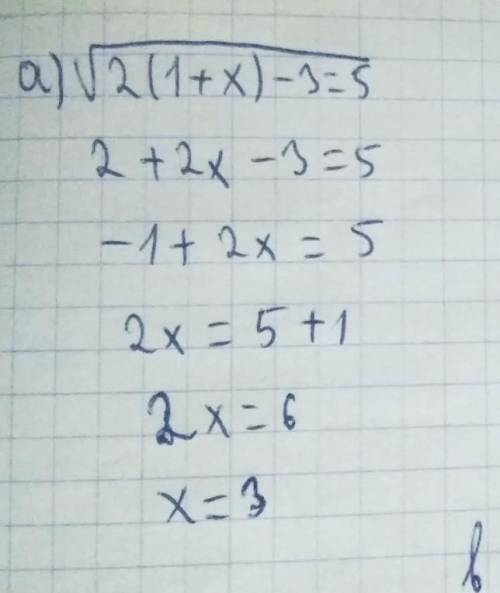 a) √2(1+x)-3=5
2+2x-3=5
-1+2x=5
2x=5+1
2x=6
x=3